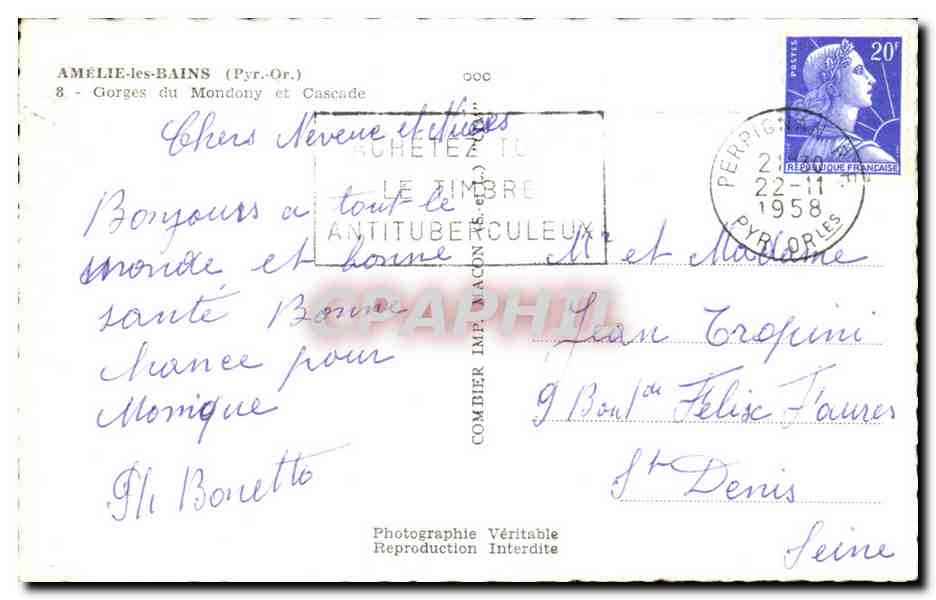 AMÉLIE-les-BAINS (Pyr.-Or.)
8 - Gorges du Mondony et Cascade
Chers Neveue et Nièces
Bonjours a tout le
monde et bonne
santé Bonne
chance pour
Monique
Ph Bonetto
ACHETEZ TO
LE TIMBRE
ANTITUBERCULEUX
COMBIER IMP. MACON (S.-et-L.)
CPAPHIL
POSTES
20F
RÉPUBLIQUE FRANÇAISE
PERPIGNAN
21 30
22-11
1958
PYR. OR LES
Mr et Madame
Jean Tropini
9 Boul de Félix Faures
St Denis
Seine
Photographie Véritable
Reproduction Interdite